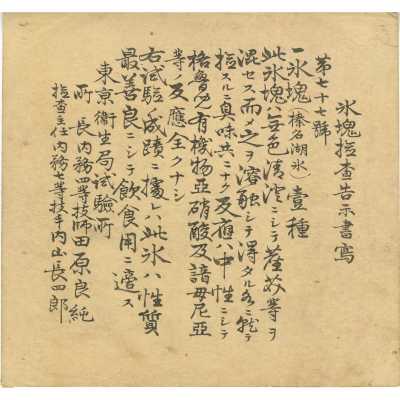 氷塊撿查告示書寫
第七十七號
一氷塊（榛名湖氷）壹種
此氷塊ハ無色清澄ニシテ塵芥等ヲ
混セス而シテ之ヲ溶融シテ得タル水ニ就テ
撿スルニ臭味共ニナク反應ハ中性ニシテ
格魯兒有機物亞硝酸及諳母尼亞
等ノ反應全クナシ
右試驗ノ成蹟ニ據レハ此氷ハ性質
最善良ニシテ飲食用ニ適ス
東京衞生局試驗所
所長内務四等技師田原良純
撿查主任内務七等技手内山長四郎